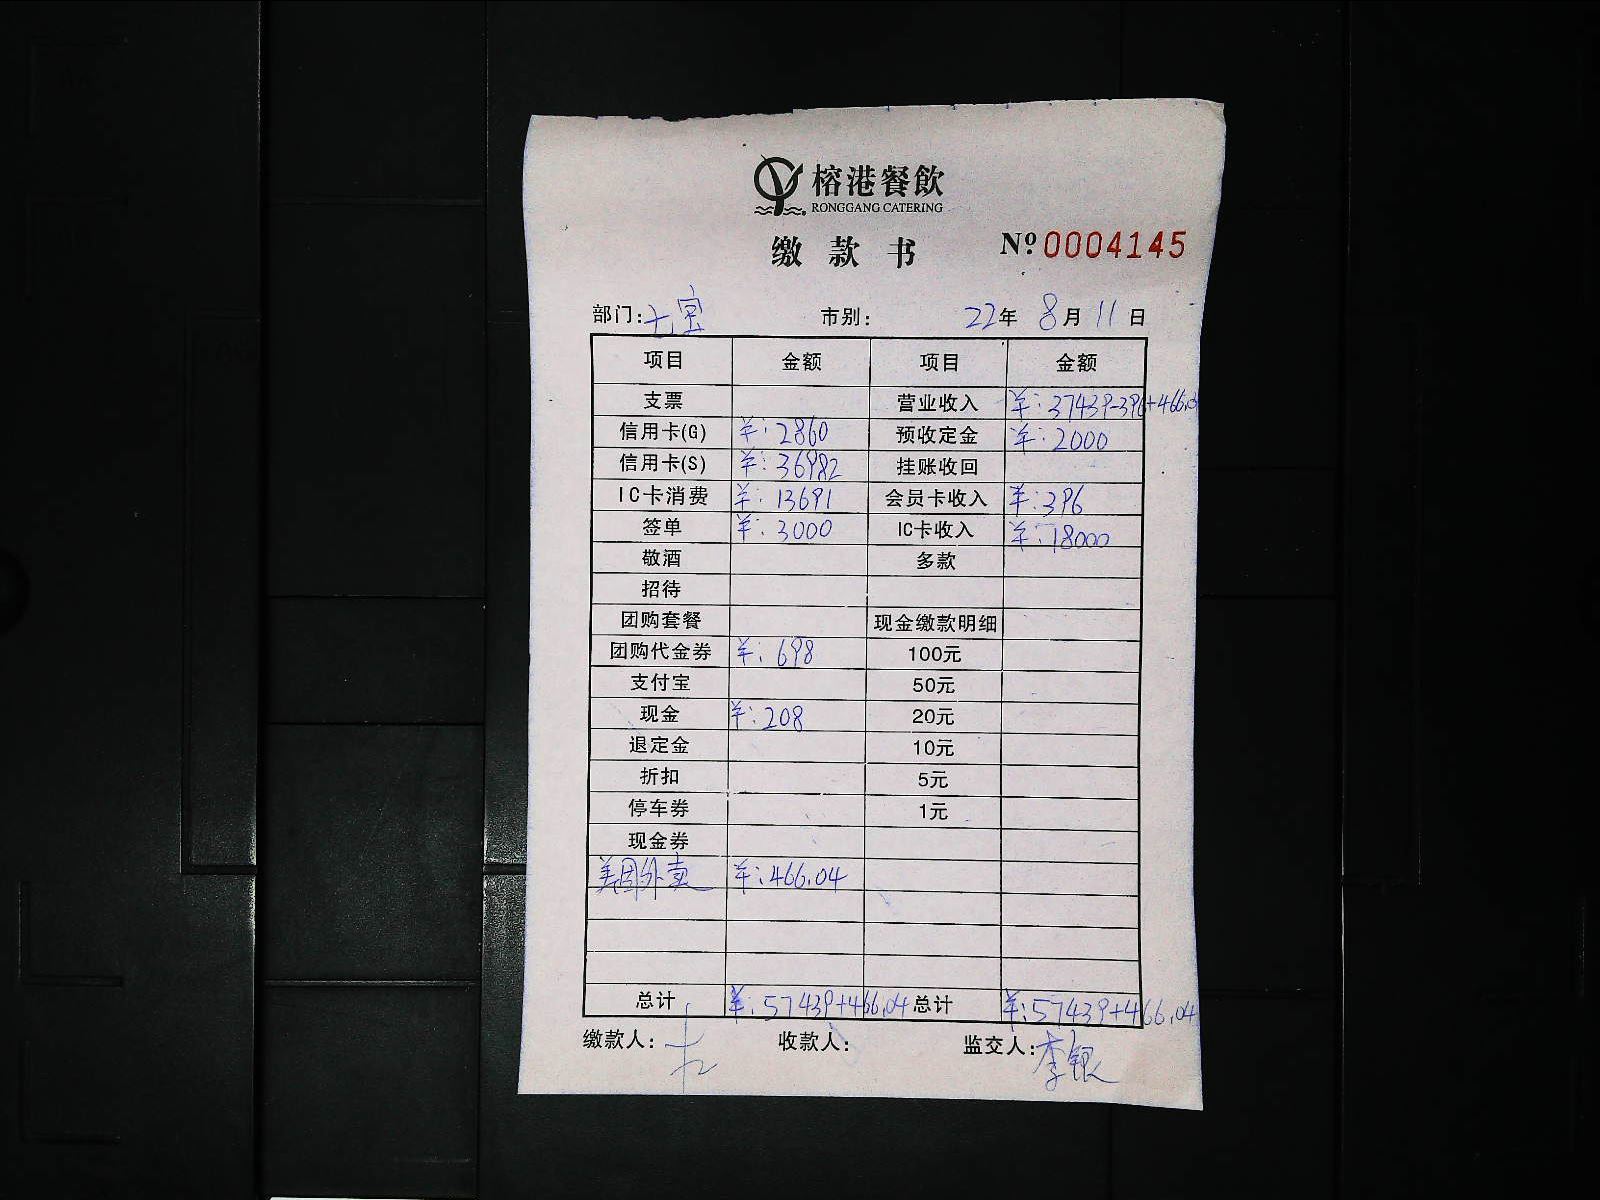 榕港餐飲
RONGGANG CATERING
缴款书 Nº 0004145
部门:七宝 市别: 22年 8月 11日
项目 金额 项目 金额
支票 营业收入 ¥:37439-396+466.04
信用卡(G) ¥:2860 预收定金 ¥:2000
信用卡(S) ¥:36982 挂账收回
IC卡消费 ¥:13691 会员卡收入 ¥:396
签单 ¥:3000 IC卡收入 ¥:18000
敬酒 多款
招待
团购套餐 现金缴款明细
团购代金券 ¥:698 100元
支付宝 50元
现金 ¥:208 20元
退定金 10元
折扣 5元
停车券 1元
现金券
美团外卖 ¥:466.04
总计 ¥:57439+466.04 总计 ¥:57439+466.04
缴款人: 收款人: 监交人:李银